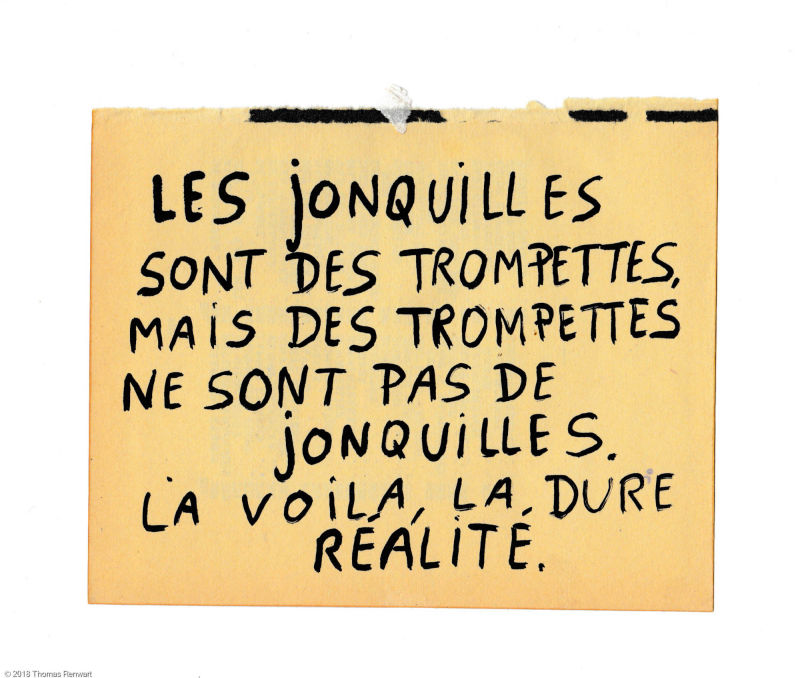 LES jONQUiLLES
SONT DES TROMPETTES,
MAiS DES TROMPETTES
NE SONT PAS DE
jONQUiLLES.
LA VOiLA, LA, DURE
RÉALiTÉ.
© 2018 Thomas Renwart